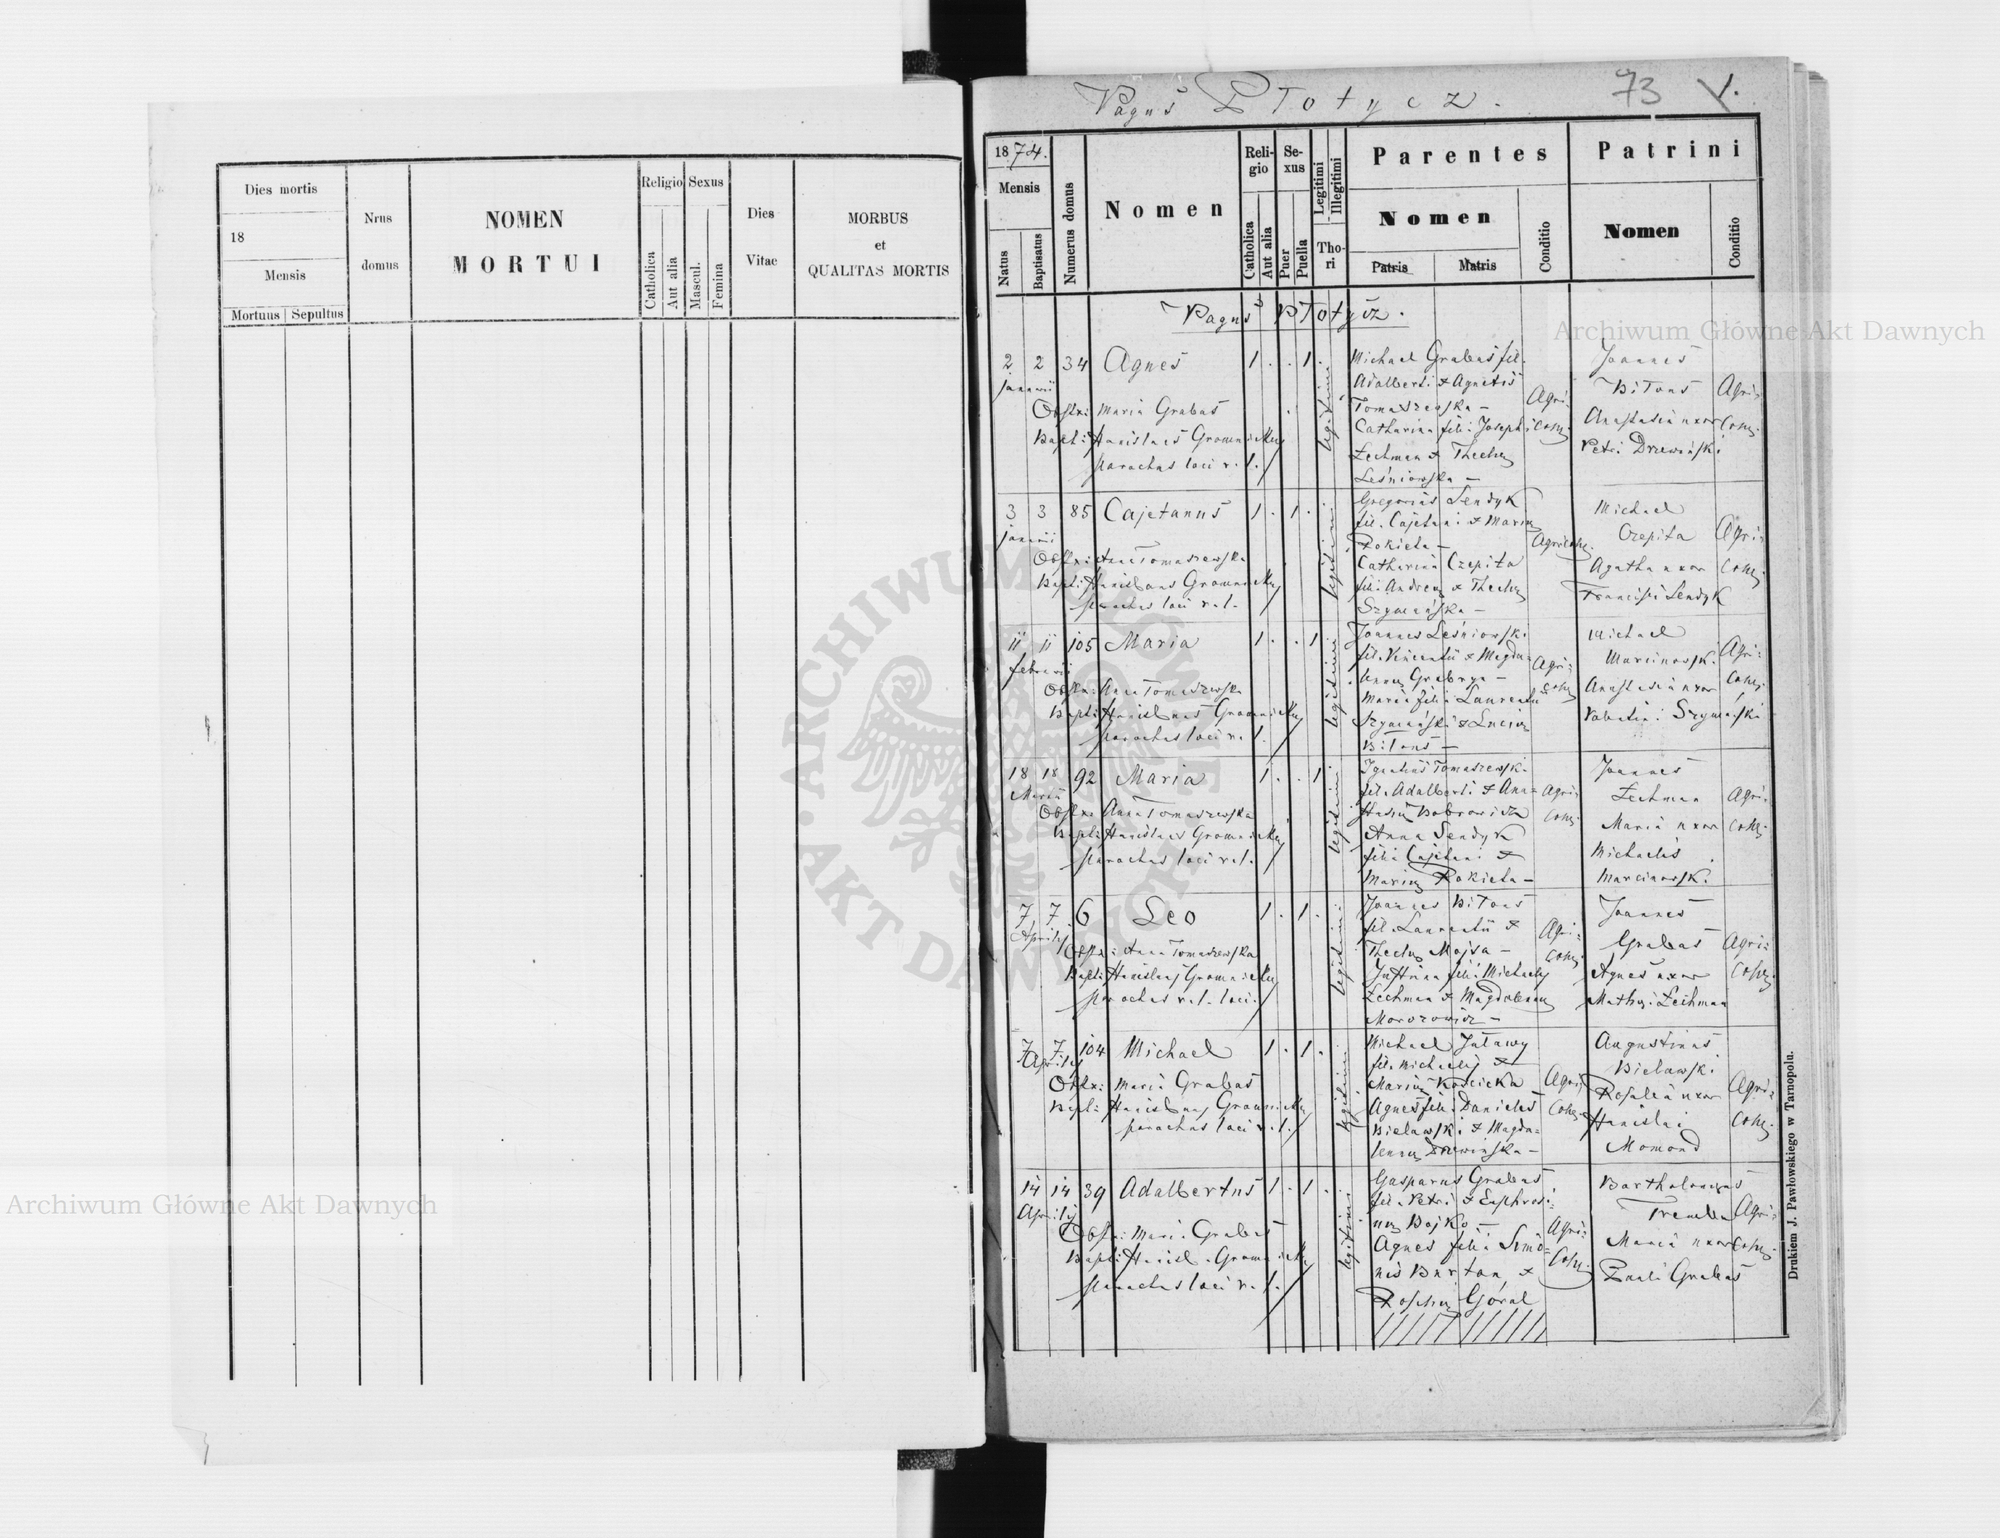 Dies mortis
18
Mensis
Mortuus Sepultus
Nrus
domus
NOMEN
MORTUI
Religio
Catholica
Aut alia
Sexus
Mascul.
Femina
Dies
Vitae
MORBUS
et
QUALITAS MORTIS
Pagus Płotycz.
73
1874.
Mensis
Natus
Baptisatus
Numerus domus
Nomen
Reli-
gio
Catholica
Aut alia
Se-
xus
Puer
Puella
Legitimi
Illegitimi
Tho-
ri
Parentes
Nomen
Patris
Matris
Conditio
Patrini
Nomen
Conditio
Pagus Płotycz.
2 2 34 Agnes 1 . . 1 .
januarii
legitimi
Obstx: Maria Grabas
Bapt: Stanislaus Gromnicki
parochus loci r. l.
Michael Grabas fil.
Adalberti & Agnetis
Tomaszewska –
Catharina fili: Josephi
Zechman & Theclae
Leśniowska –
Agri-
colae.
Joannes
Bitous
Anastasia uxor
Petri Drzewiński
Agri-
colae.
3 3 85 Cajetanus 1 . 1 .
januarii
legitimi
Obstx: Anna Tomaszewska
Bapt: Stanislaus Gromnicki
parochus loci r. l.
Gregorius Sendyk
fil. Cajetani & Mariae
Rokieta –
Catharina Czepita
fili: Andreae & Theclae
Szymańska –
Agricolae.
Michael
Czepita
Agatha uxor
Francisci Sendyk
Agri-
colae.
11 11 105 Maria 1 . . 1
februarii
legitimi
Obstx: Anna Tomaszewska
Bapt: Stanislaus Gromnicki
parochus loci r. l.
Joannes Leśniowski
fil. Vincentii & Magda-
lenae
Maria filia Laurentii
Szymański & Luciae
Bitous –
Agri-
colae
Michael
Marcinowski
Anastasia uxor
Valentini Szymański
Agri-
colae.
18 18 92 Maria 1 . . 1 .
Martii
legitimi
Obstx: Anna Tomaszewska
Bapt: Stanislaus Gromnicki
parochus loci r. l.
Ignatius Tomaszewski
fil. Adalberti & Ana-
stasiae Bobrowicz
Anna Sendyk
filia Cajetani &
Mariae Rokieta –
Agri-
colae.
Joannes
Zechman
Maria uxor
Michaelis
Marcinowski
Agri-
colae.
7 7 6 Leo 1 . 1 .
Aprilis
legitimi
Obstx: Anna Tomaszewska
Bapt: Stanislaus Gromnicki
parochus r. l. loci.
Joannes Bitous
fil. Laurentii &
Theclae Mojsa –
Justina fili: Michaelis
Zechman & Magdalenae
Morozowicz –
Agri-
colae.
Joannes
Grabas
Agnes uxor
Mathaei Zechman
Agri-
colae.
7 7 104 Michael 1 . 1 .
Aprilis
legitimi
Obstx: Maria Grabas
Bapt: Stanislaus Gromnicki
parochus loci r. l.
Michael
fil. Michaelis &
Mariae
Agnes fili: Danielis
Bielawski & Magda-
lenae Drzewińska –
Agri-
colae.
Augustinus
Bielawski
Rosalia uxor
Stanislai
Momond
Agri-
colae.
14 14 39 Adalbertus 1 . 1 .
Aprilis
legitimi
Obstx: Maria Grabas
Bapt: Stanisl. Gromnicki
parochus loci r. l.
Gasparus Grabas
fil. Petri & Euphrosi-
nae Bojko –
Agnes filia Simo-
nis Burton &
Rosaliae Góral
Agri-
colae.
Bartholomaeus
Maria uxor
Pauli Grabas
Agri-
colae.
Drukiem J. Pawłowskiego w Tarnopolu.
Archiwum Główne Akt Dawnych
Archiwum Główne Akt Dawnych
ARCHIWUM GŁÓWNE
AKT DAWNYCH